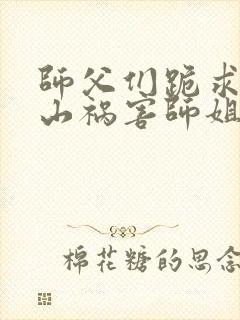 師父们跪求
山祸害师姐
棉花糖的思念